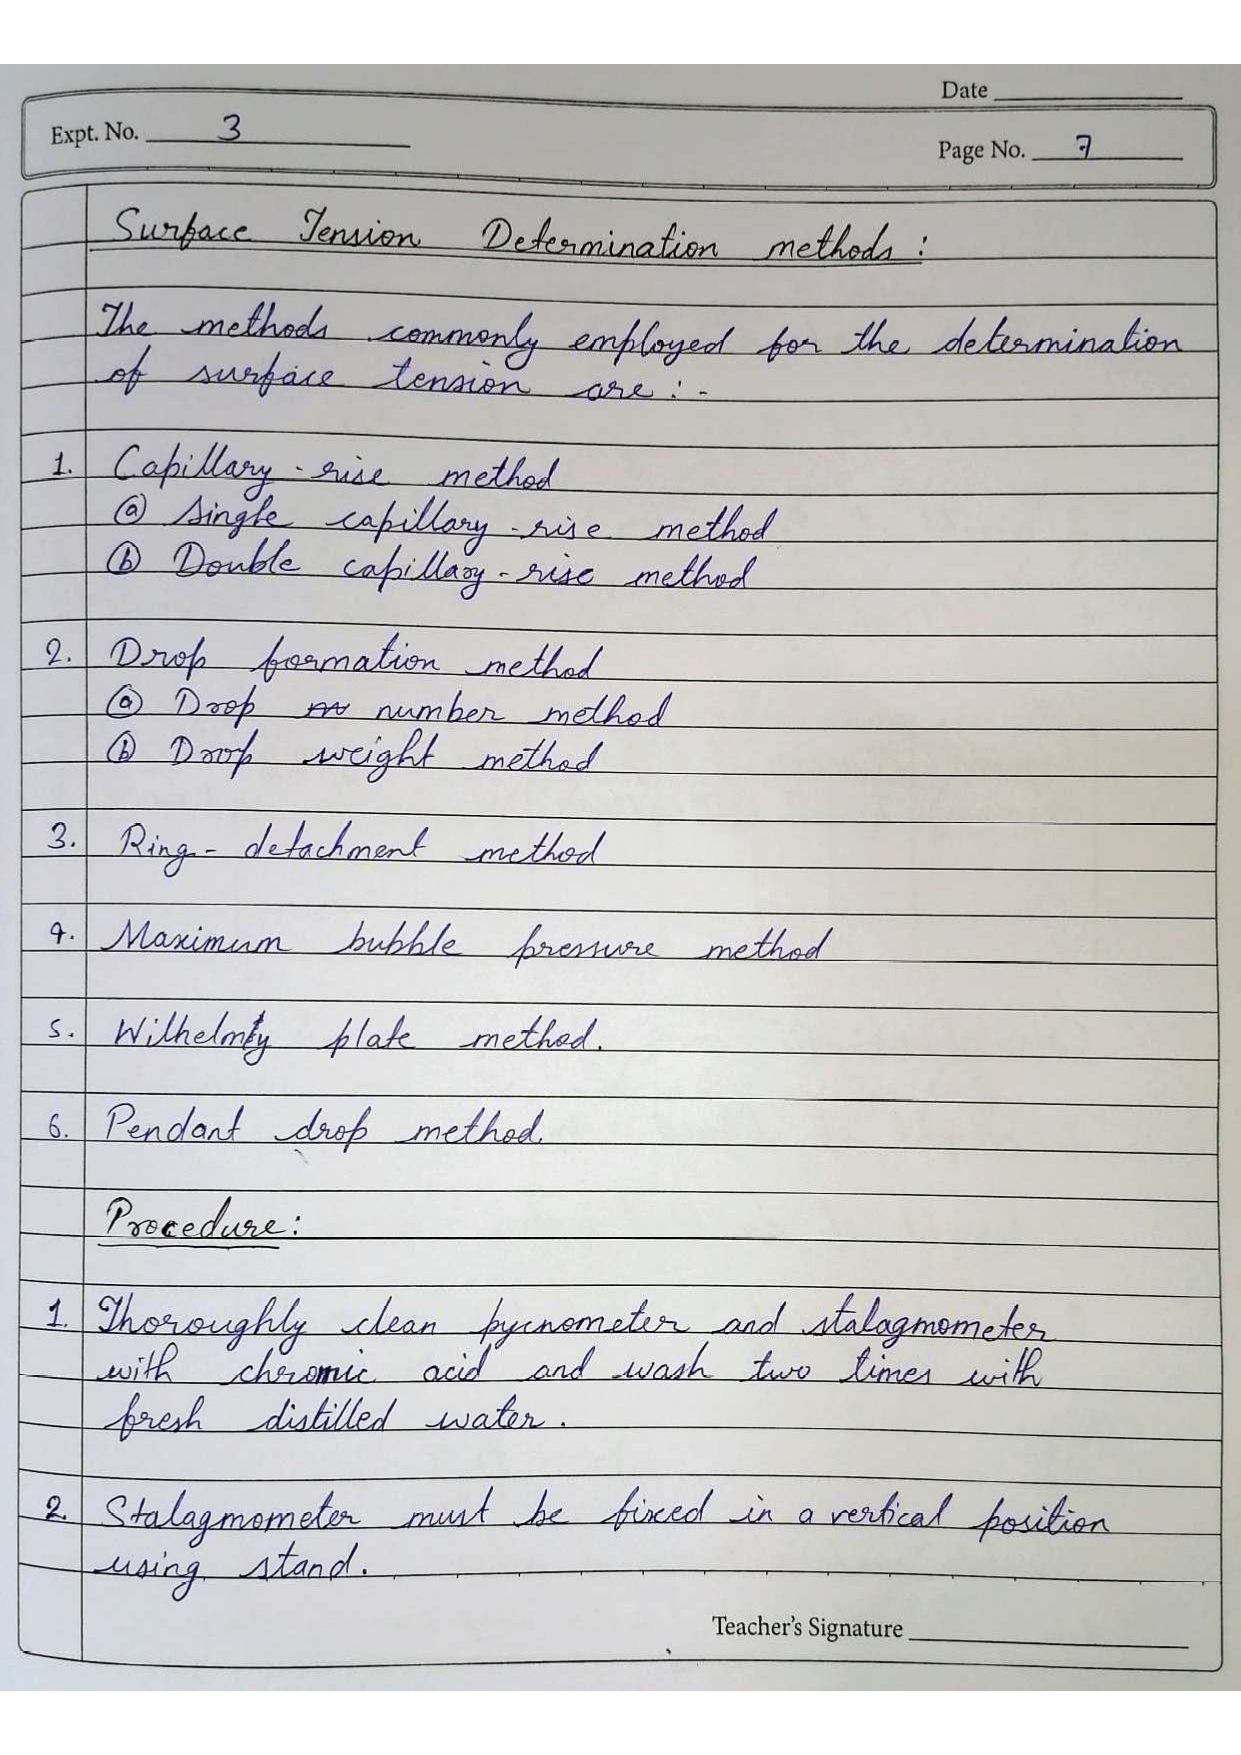 Date
Expt. No. 3
Page No. 7
Surface Tension Determination methods :
The methods commonly employed for the determination
of surface tension are : -
1. Capillary - rise method
ⓐ Single capillary - rise method
ⓑ Double capillary - rise method
2. Drop formation method
ⓐ Drop number method
ⓑ Drop weight method
3. Ring - detachment method
4. Maximum bubble pressure method
5. Wilhelmty plate method.
6. Pendant drop method.
Procedure :
1. Thoroughly clean pycnometer and stalagmometer
with chromic acid and wash two times with
fresh distilled water .
2. Stalagmometer must be fixed in a vertical position
using stand .
Teacher's Signature